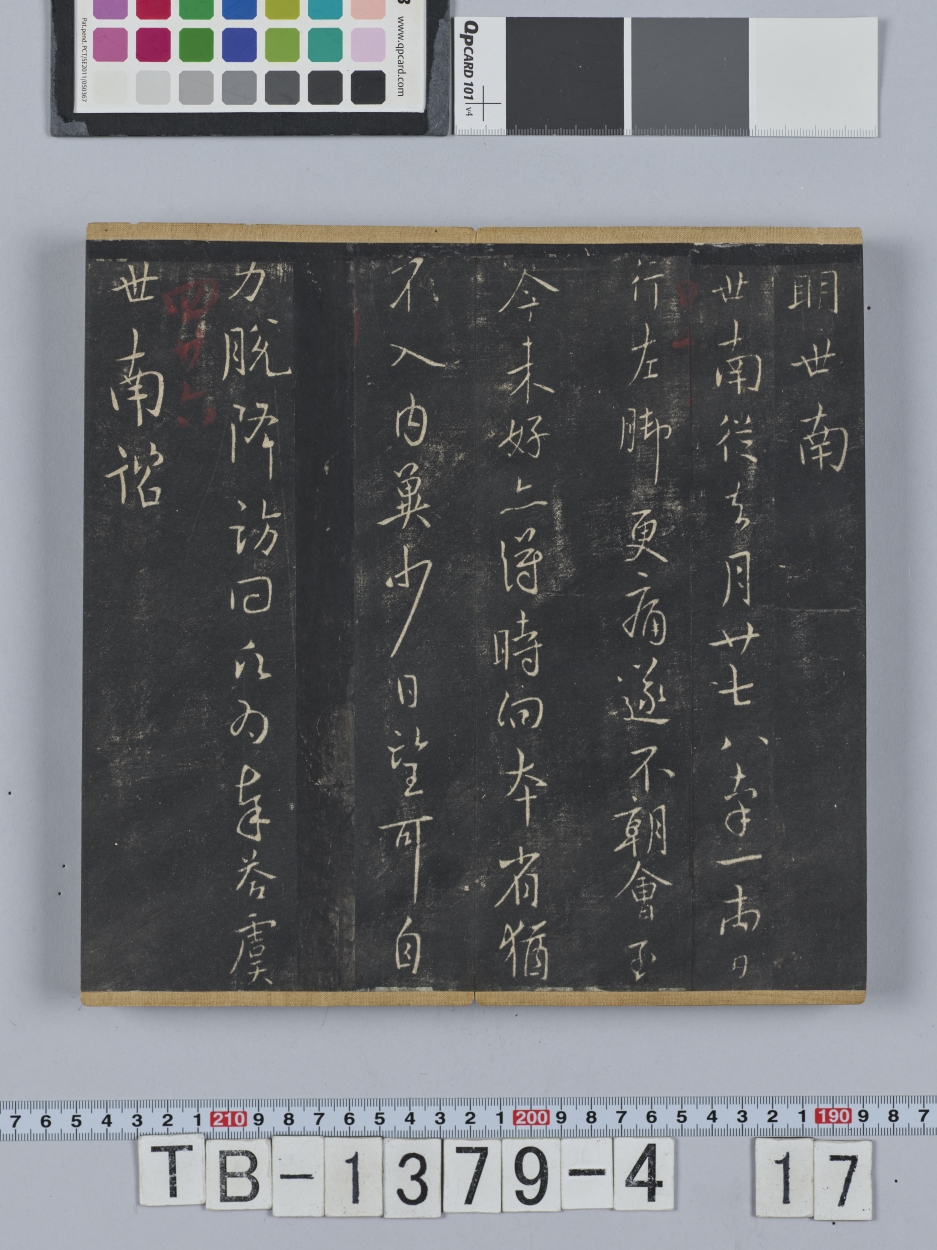 www.qpcard.com
QPCARD 101 v4
明世南
世南從去月廿七八率一兩日
行左脚更痛遂不朝會至
今未好亦得時向本省猶
不入内冀少日望可自
力脱降訪問願為奉答虞
世南諮
7 6 5 4 3 2 1 210 9 8 7 6 5 4 3 2 1 200 9 8 7 6 5 4 3 2 1 190 9 8 7
TB-1379-4 17